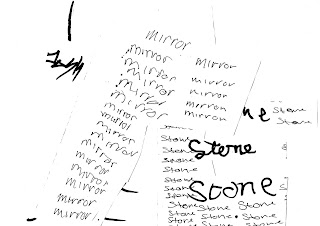 mirror
mirror mirror
mirror mirror
mirror mirror
mirror mirror
mirror mirror
mirror
mirror
mirror
mirror
mirror
mirror
mirror
mirror
mirror
ne Stone
Stone
Stone
Stone
Stone
Stone
Stone
Stone
Stone
Stone
Stone Stone Stone
Stone Stone Stone
Stone Stone Stone